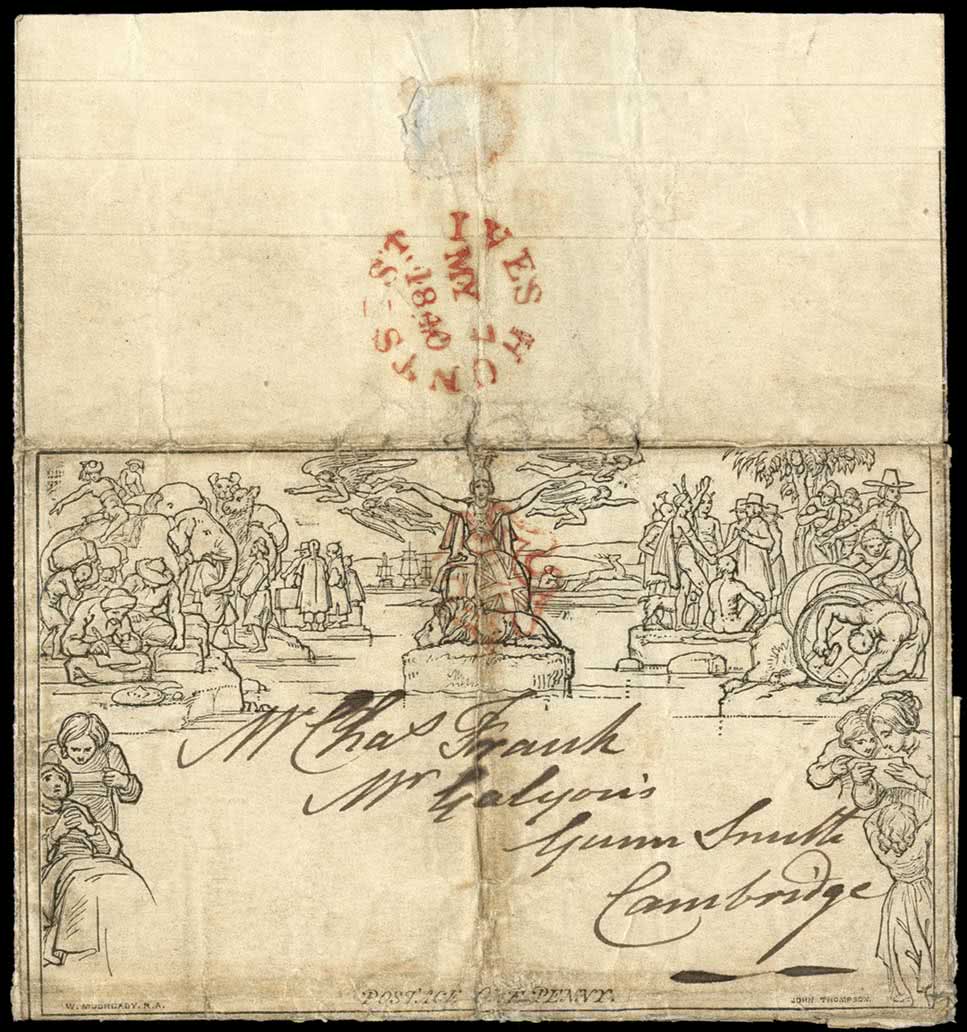 ST. IVES HUNTS
MY 7
1840
Mr Chas Frank
Mr Galyon's
Gunn Smith
Cambridge
POSTAGE ONE PENNY.
W. MULREADY. R.A.
JOHN THOMPSON.